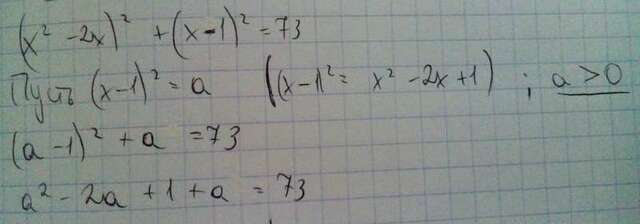 (x² - 2x)² + (x - 1)² = 73
Пусть (x - 1)² = a ((x - 1)² = x² - 2x + 1) ; a > 0
(a - 1)² + a = 73
a² - 2a + 1 + a = 73